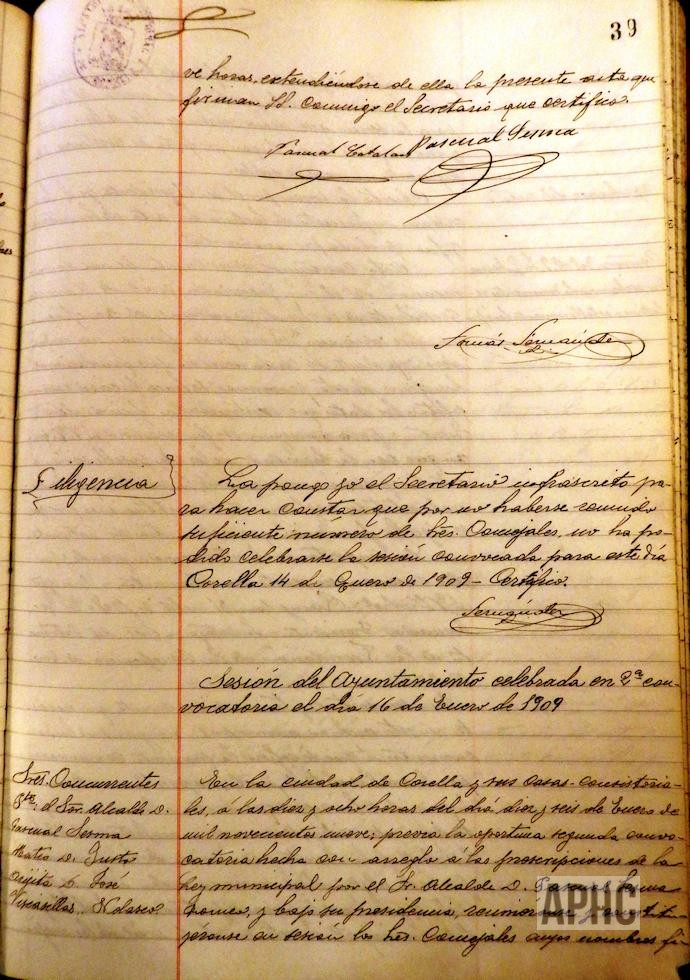 39
ve horas, extendiéndose de ella la presente acta que
firman SS. conmigo el Secretario que certifico.
Pascual Catalan Pascual Sesma
Tomás Fernández
Diligencia
La pongo yo el Secretario infrascrito pa-
ra hacer constar que por no haberse reunido
suficiente número de Sres. Concejales, no ha po-
dido celebrarse la sesión convocada para este día
Corella 14 de Enero de 1909 - Certifico.
Fernández
Sesión del Ayuntamiento celebrada en 2ª con-
vocatoria el día 16 de Enero de 1909
Sres. Concurrentes
Pte. el Sr. Alcalde D.
Pascual Sesma
D. Justo
D. José
Nolasco
En la ciudad de Corella y sus casas-consistoria-
les, á las diez y ocho horas del día diez y seis de Enero de
mil novecientos nueve; previa la oportuna segunda convo-
catoria hecha con arreglo á las prescripciones de la
Ley municipal por el Sr. Alcalde D. Pascual Sesma
y bajo su presidencia,
en sesión los Sres. Concejales cuyos nombres fi-
APHC